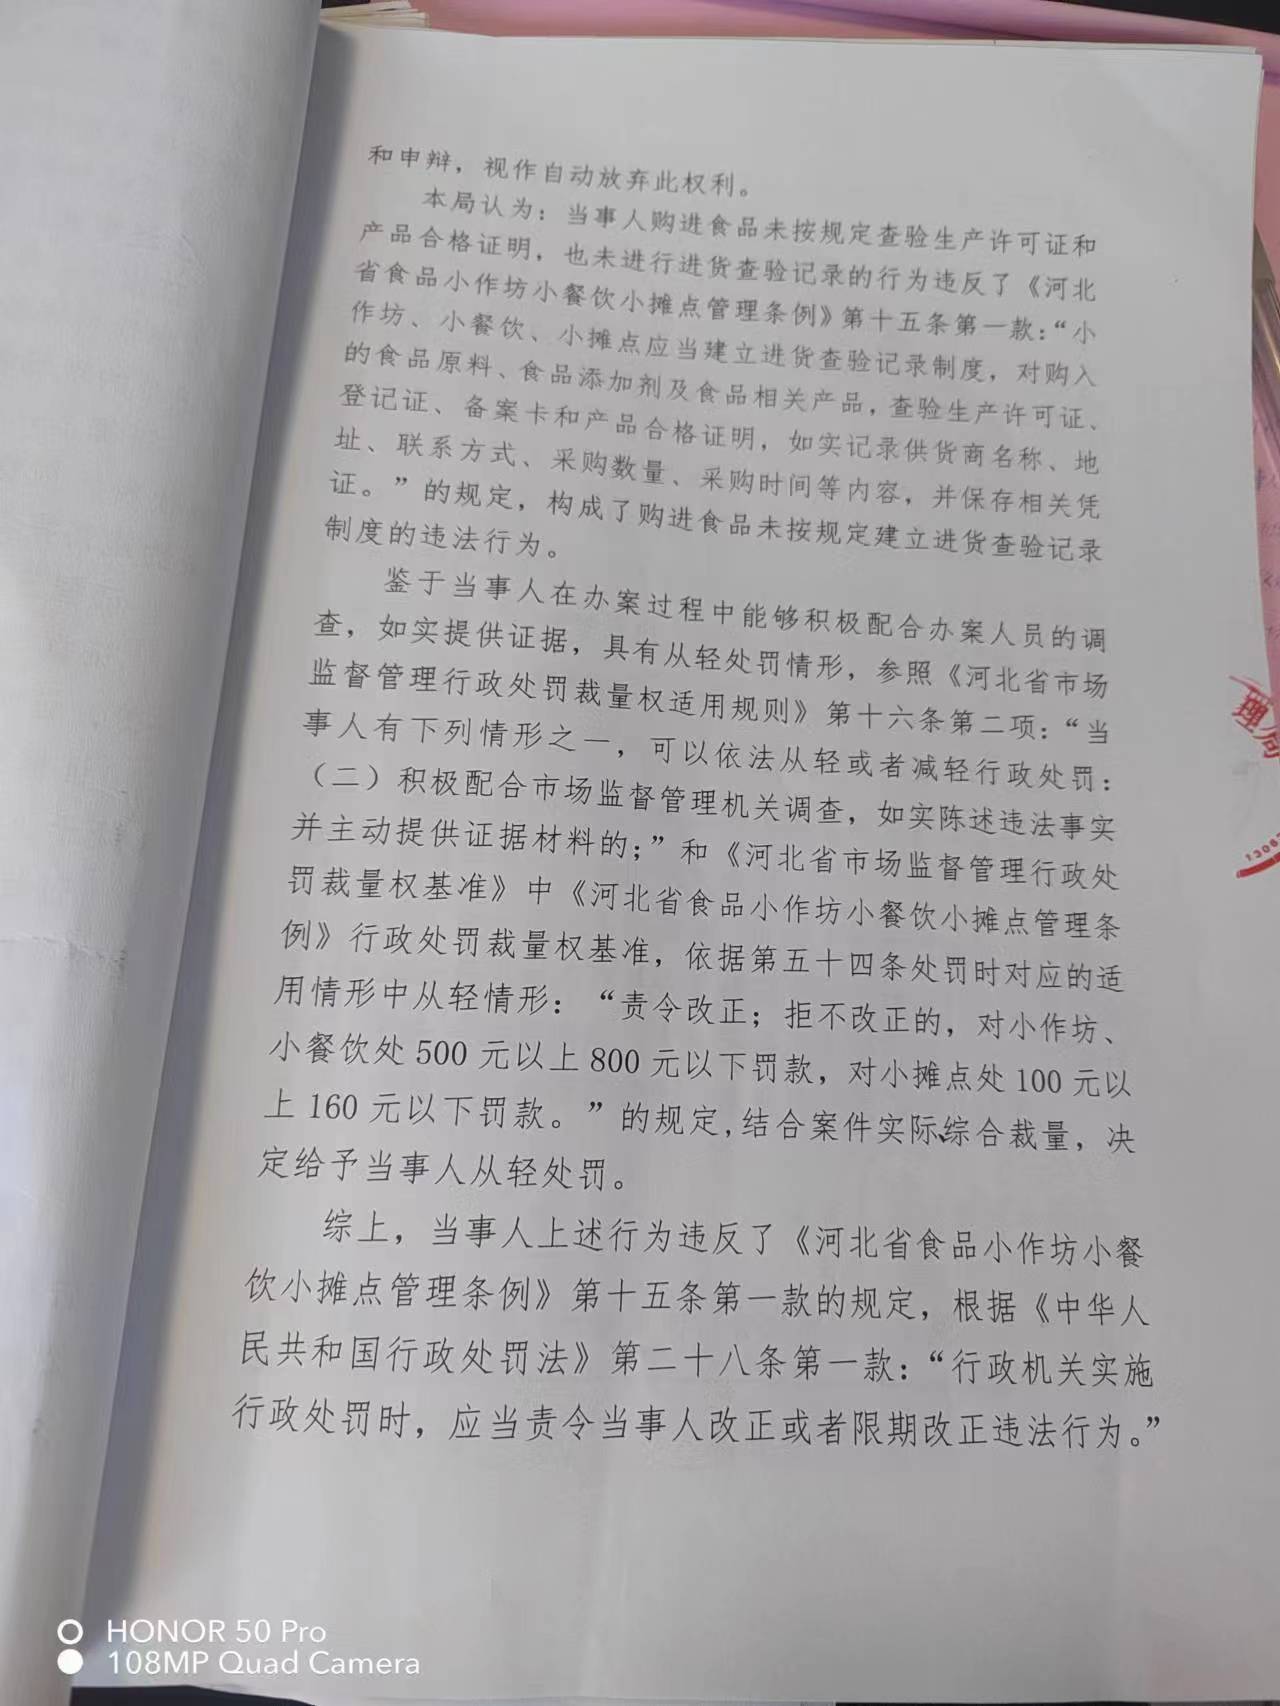 和申辩，视作自动放弃此权利。
本局认为：当事人购进食品未按规定查验生产许可证和
产品合格证明，也未进行进货查验记录的行为违反了《河北
省食品小作坊小餐饮小摊点管理条例》第十五条第一款：“小
作坊、小餐饮、小摊点应当建立进货查验记录制度，对购入
的食品原料、食品添加剂及食品相关产品，查验生产许可证、
登记证、备案卡和产品合格证明，如实记录供货商名称、地
址、联系方式、采购数量、采购时间等内容，并保存相关凭
证。”的规定，构成了购进食品未按规定建立进货查验记录
制度的违法行为。
鉴于当事人在办案过程中能够积极配合办案人员的调
查，如实提供证据，具有从轻处罚情形，参照《河北省市场
监督管理行政处罚裁量权适用规则》第十六条第二项：“当
事人有下列情形之一，可以依法从轻或者减轻行政处罚：
（二）积极配合市场监督管理机关调查，如实陈述违法事实
并主动提供证据材料的；”和《河北省市场监督管理行政处
罚裁量权基准》中《河北省食品小作坊小餐饮小摊点管理条
例》行政处罚裁量权基准，依据第五十四条处罚时对应的适
用情形中从轻情形：“责令改正；拒不改正的，对小作坊、
小餐饮处 500 元以上 800 元以下罚款，对小摊点处 100 元以
上 160 元以下罚款。”的规定,结合案件实际、综合裁量，决
定给予当事人从轻处罚。
综上，当事人上述行为违反了《河北省食品小作坊小餐
饮小摊点管理条例》第十五条第一款的规定，根据《中华人
民共和国行政处罚法》第二十八条第一款：“行政机关实施
行政处罚时，应当责令当事人改正或者限期改正违法行为。”
理局
1306
HONOR 50 Pro
108MP Quad Camera